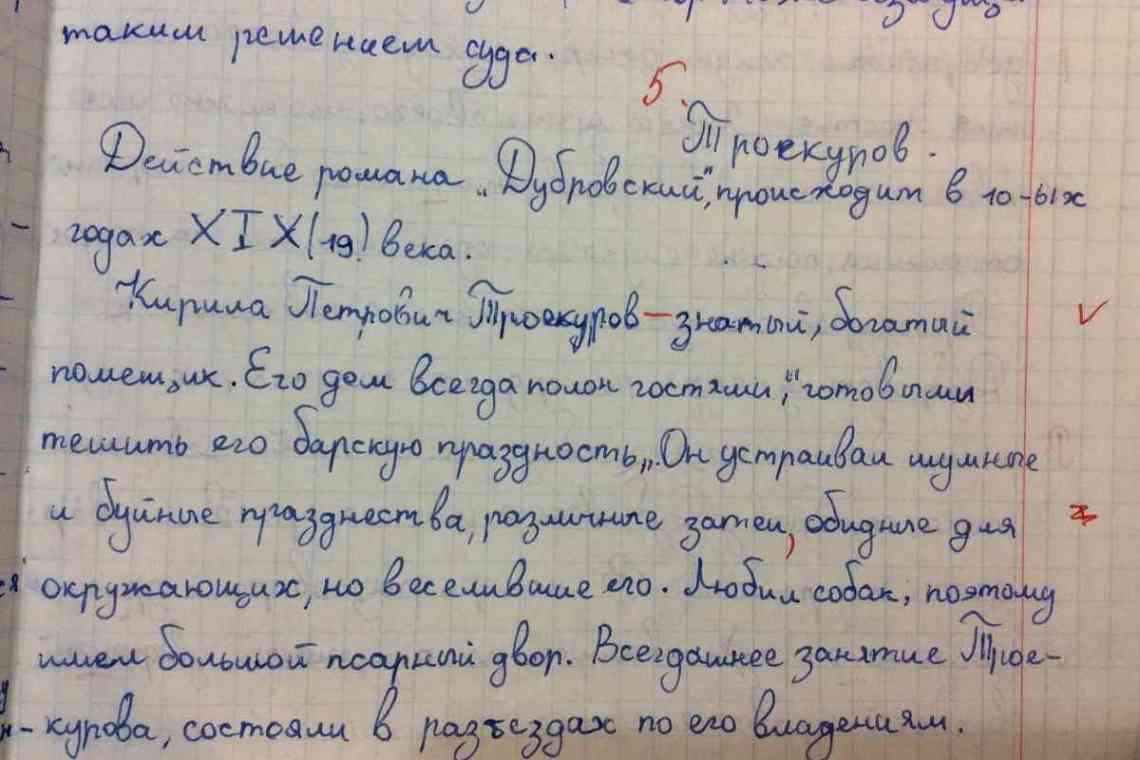 таким решением суда.
5.
Троекуров.
Действие романа „Дубровский", происходит в 10-ых
годах XIX(19) века.
Кирила Петрович Троекуров—знатый, богатый
помещик. Его дом всегда полон гостями, "готовыми
тешить его барскую праздность„. Он устраивал шумные
и буйные празднества, различные затеи, обидные для
окружающих, но веселившие его. Любил собак, поэтому
имел большой псарный двор. Всегдашнее занятие Трое-
курова, состояли в разъездах по его владениям.